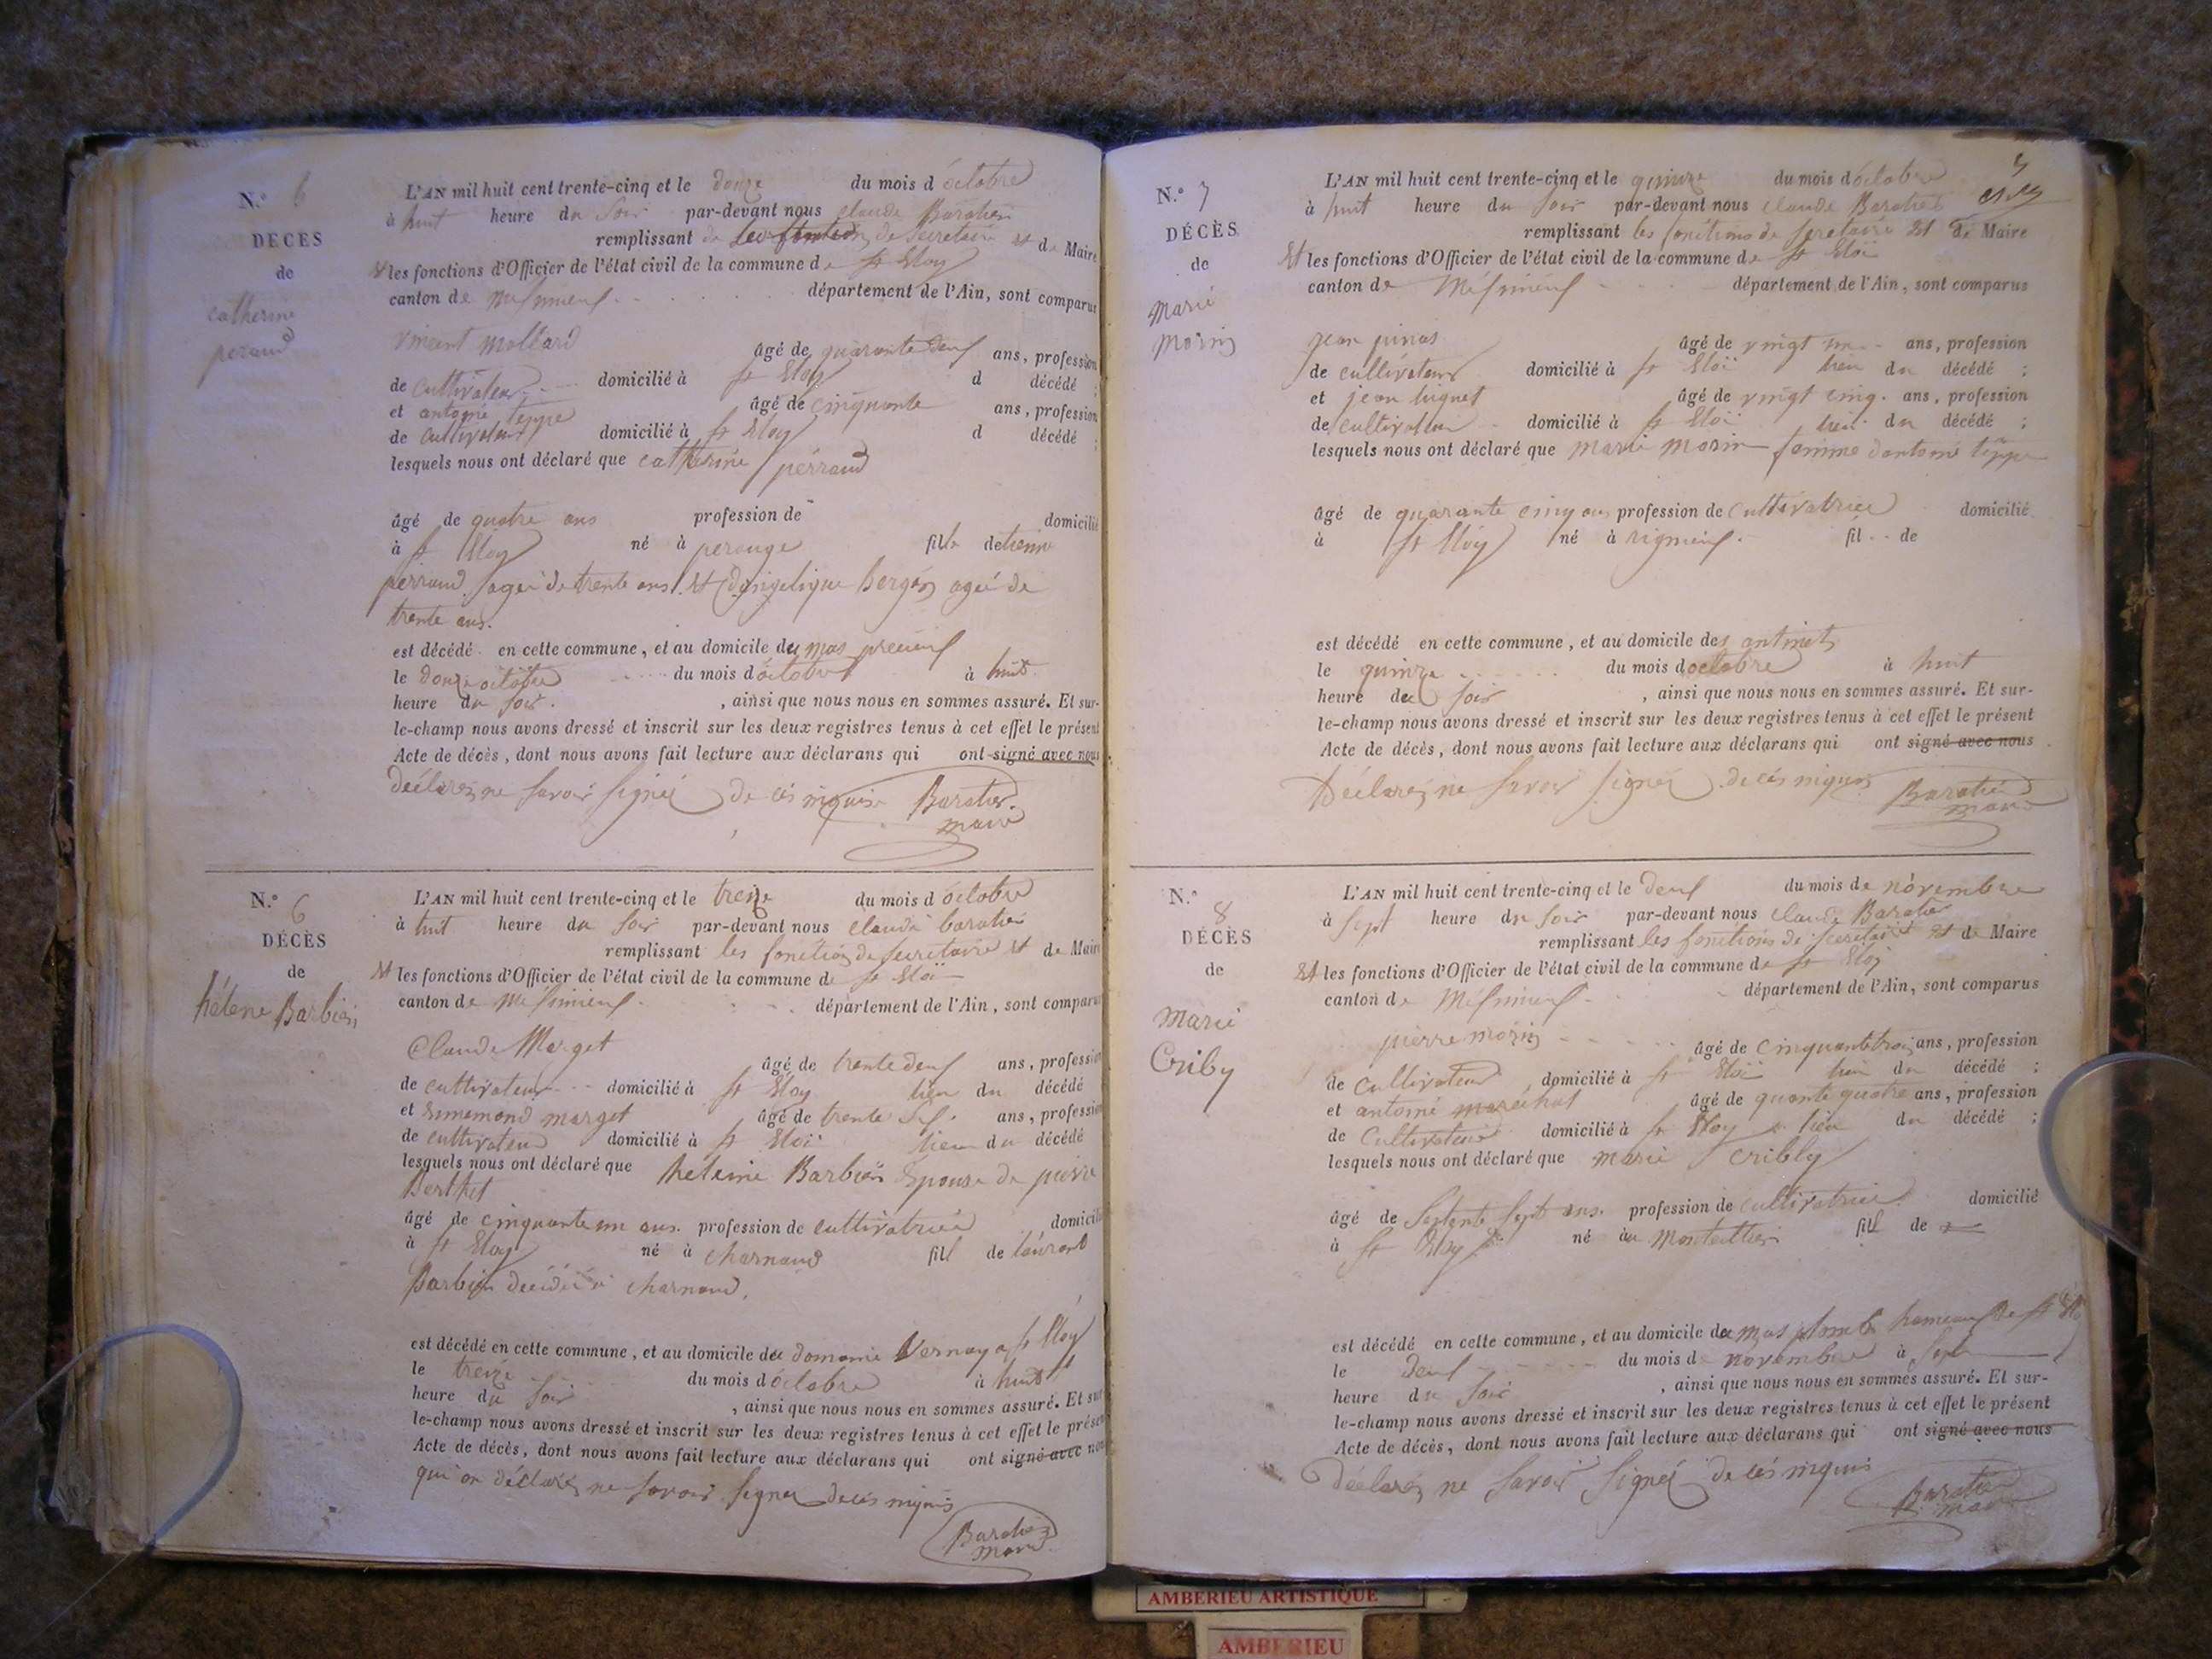 N.° 6
DECES
de
catherine
peraud
L'AN mil huit cent trente-cinq et le douze du mois d'octobre
à huit heure du soir par-devant nous claude Baratier
remplissant de les fonction de Secretaire et de Maire
et les fonctions d'Officier de l'état civil de la commune de st Eloy
canton de mesimieux département de l'Ain, sont comparus
vincent mollard âgé de quarante deux ans, profession
de cultivateur domicilié à st Eloy d décédé ;
et antoine teppe âgé de cinquante ans, profession
de cultivateur domicilié à st Eloy d décédé ;
lesquels nous ont déclaré que catherine perraud
âgé de quatre ans profession de domicilié
à st Eloy né à perouge fille detienne
perraud agé de trente ans et dangelique bergér agée de
trente ans.
est décédé en cette commune, et au domicile du mas
le douze octobre du mois d'octobre à huit
heure du soir , ainsi que nous nous en sommes assuré. Et sur-
le-champ nous avons dressé et inscrit sur les deux registres tenus à cet effet le présent
Acte de décès, dont nous avons fait lecture aux déclarans qui ont signé avec nous
déclaré ne savoir signé de ces Baratier
maire
N.° 6
DÉCÈS
de
hélene Barbier
L'AN mil huit cent trente-cinq et le treize du mois d'octobre
à huit heure du soir par-devant nous claude baratier
remplissant les fonction de Secretaire et de Maire
et les fonctions d'Officier de l'état civil de la commune de st Eloi
canton de mesimieux département de l'Ain, sont comparus
Claude Marget âgé de trente deux ans, profession
de cultivateur domicilié à st Eloy lieu du décédé
et marget âgé de trente ans, profession
de cultivateur domicilié à st Eloi lieu du décédé
lesquels nous ont déclaré que heleine Barbier Epouse de pierre
Berthet
âgé de cinquante un ans. profession de cultivatrice domicilié
à st Eloy né à charnoud fill de laurent
Barbier décédé à charnoud.
est décédé en cette commune, et au domicile du domaine Vernay a st Eloy
le treize du mois d'octobre à huit
heure du soir , ainsi que nous nous en sommes assuré. Et sur
le-champ nous avons dressé et inscrit sur les deux registres tenus à cet effet le présen
Acte de décès, dont nous avons fait lecture aux déclarans qui ont signé avec nou
qui on déclaré ne savoir signer de ces
Baratier
maire
N.° 7
DÉCÈS
de
Marie
Morin
L'AN mil huit cent trente-cinq et le quinze du mois d'octobre
à huit heure du soir par-devant nous claude Baratier
remplissant les fonctions de Secretaire et de Maire
et les fonctions d'Officier de l'état civil de la commune de st Eloi
canton de Mésimieux département de l'Ain, sont comparus
jean pinas âgé de vingt un ans, profession
de cultivateur domicilié à st Eloi lieu du décédé ;
et jean âgé de vingt cinq ans, profession
de cultivateur domicilié à st Eloi lieu du décédé ;
lesquels nous ont déclaré que marie morin femme dantoine teppe
âgé de quarante cinq ans profession de cultivatrice domicilié
à st Eloy né à rignieux fil de
est décédé en cette commune, et au domicile des
le quinze du mois d'octobre à huit
heure du soir , ainsi que nous nous en sommes assuré. Et sur-
le-champ nous avons dressé et inscrit sur les deux registres tenus à cet effet le présent
Acte de décès, dont nous avons fait lecture aux déclarans qui ont signé avec nous
Déclaré ne savoir signé de ces Baratier
maire
N.° 8
DÉCÈS
de
marie
Criby
L'AN mil huit cent trente-cinq et le deux du mois de novembre
à sept heure du soir par-devant nous claude Baratier
remplissant les fonctions de Secretaire et de Maire
et les fonctions d'Officier de l'état civil de la commune de st Eloy
canton de Mésimieux département de l'Ain, sont comparus
pierre morin âgé de cinquante trois ans, profession
de cultivateur domicilié à st Eloi lieu du décédé ;
et antoine marechat âgé de quante quatre ans, profession
de cultivateur domicilié à st Eloy lieu du décédé ;
lesquels nous ont déclaré que marie cribly
âgé de Septente sept ans. profession de cultivatrice domicilié
à st Eloy né au montellier fill de
est décédé en cette commune, et au domicile du mas hameau de st Eloy
le deux du mois de novembre à sept
heure du soir , ainsi que nous nous en sommes assuré. Et sur-
le-champ nous avons dressé et inscrit sur les deux registres tenus à cet effet le présent
Acte de décès, dont nous avons fait lecture aux déclarans qui ont signé avec nous
Déclaré ne savoir signé de ces
Baratier
maire
AMBERIEU ARTISTIQUE
AMBERIEU